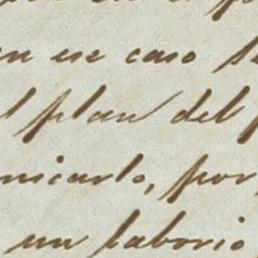 en ese caso
el plan del
nicarlo, por
un laborio